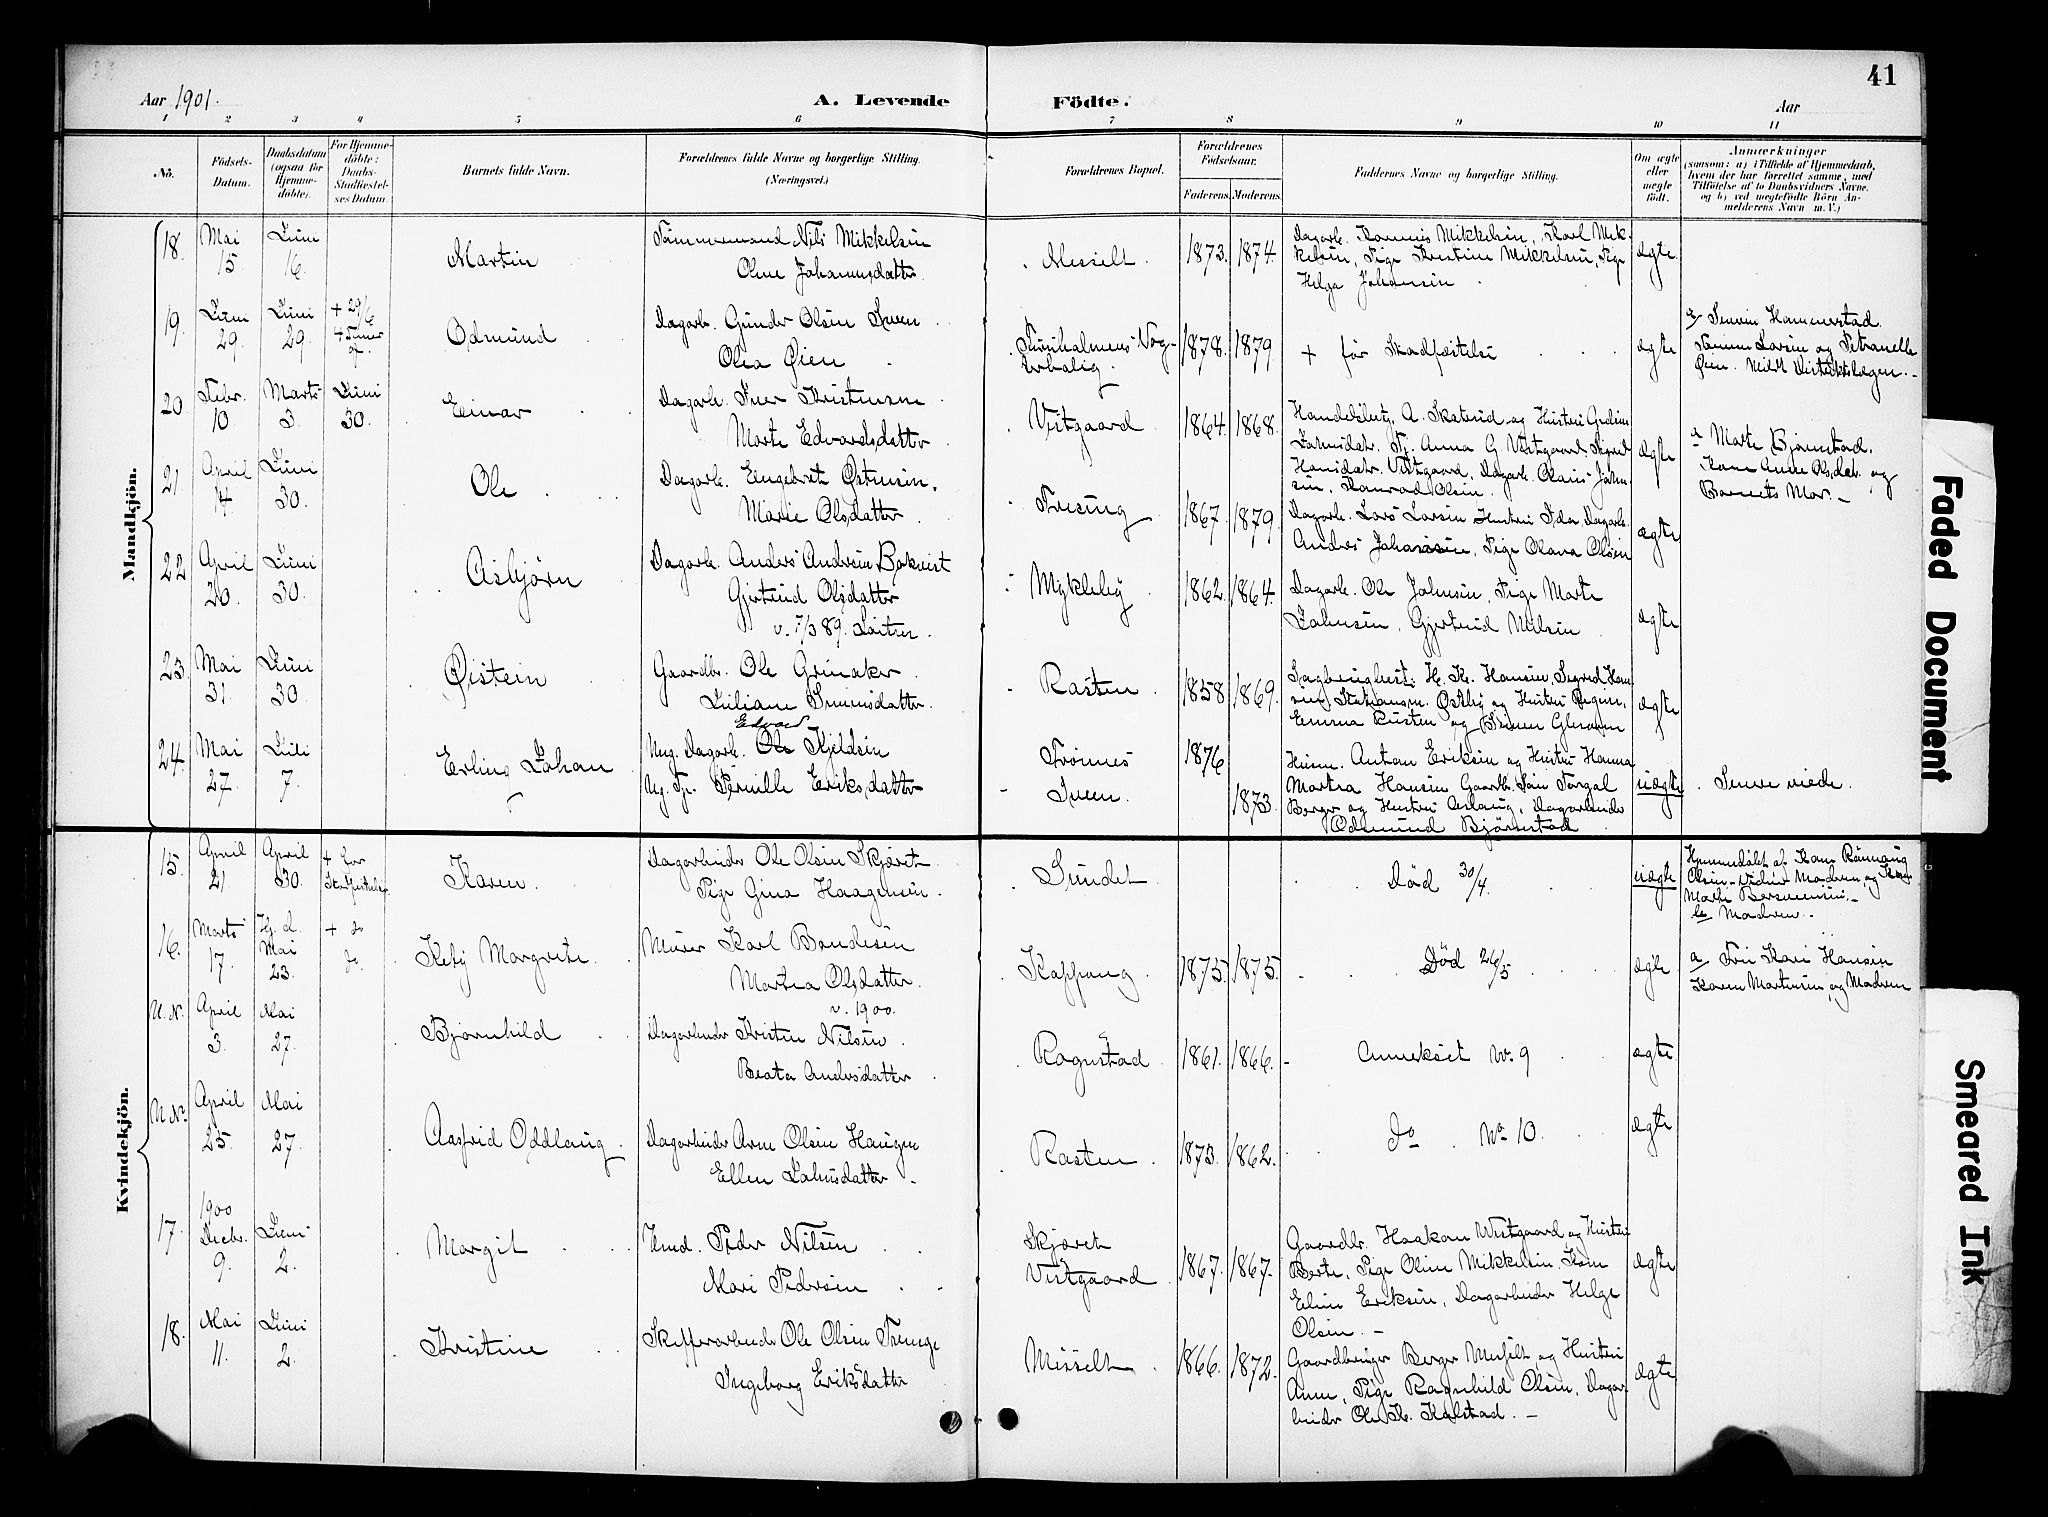 41
Aar 1901.
A. Levende
Födte.
Aar
1 2 3 4 5 6 7 8 9 10 11
No.
Födsels-
Datum.
Daabsdatum
(ogsaa for
Hjemme-
döbte).
For Hjemme-
döbte:
Daabs-
Stadfæstel-
ses Datum.
Barnets fulde Navn.
Forældrenes fulde Navne og borgerlige Stilling.
(Næringsvei.)
Forældrenes Bopæl.
Forældrenes
Födselsaar.
Faderens. Moderens.
Faddernes Navne og borgerlige Stilling.
Om ægte
eller
uægte
födt.
Anmærkninger
(saasom: a) i Tilfælde af Hjemmedaab,
hvem der har forrettet samme, med
Tilföielse af to Daabsvidners Navne.
og b) ved uægtefödte Börn An-
melderens Navn m. V.)
Mandkjön.
18.
Mai
15
Juni
16.
Martin
Tömmermand Nils Mikkelsen
Oline Johannesdatter
Messelt.
1873. 1874.
Dagarb. Hannes Mikkelsen, Karl Mik-
kelsen, Pige Kristine Mikkelsen, Pige
Helga Johansen
ægte
19.
Juni
29.
Juni
29.
+ 29/6
Odmund
Dagarb. Gunder Olsen Sveen
Olea Øien
1878. 1879
+ før Stadfæstelse
ægte
a/ Hammerstad
Larsen og Petranelle
Øien. Meldt Distriktslægen.
20.
Febr.
10
Marts
3.
Juni
30.
Einar
Dagarb. Iver Kristensen
Marte Edvardsdatter
Vestgaard
1864. 1868.
Handelsbetj. A. Skaterud og Hustru
Anna G. Vestgaard, Sigrid
Hansdatr. Vestgaard, Dagarb. Olaus Johan-
sen, Konrad Olsen.
ægte
a Marte Bjørnstad.
Kone Anne Olsdtr. og
Barnets Mor.
21.
April
14
Juni
30.
Ole
Dagarb. Engebret Østensen.
Marie Olsdatter
1867. 1879.
Dagarb. Lars Larsen Hustru Ida, Dagarb.
Andres Johansen, Pige Olava Olsen
ægte
22
April
20.
Juni
30.
Asbjørn
Dagarb. Anders Andersen Bakvist
Gjertrud Olsdatter
v. 7/3 89. Løiten.
Mykleby
1862. 1864.
Dagarb. Ole Johnsen, Pige Marte
Johnsen, Gjertrud Nilsen
ægte
23.
Mai
31.
Juni
30.
Øistein
Gaardbr. Ole Grinaker
Juliane Simensdatter
Rasten
1858 1869.
H. K. Hansen, Sigrid Han-
sen, Østby og Hustru Regine,
Emma Rusten og
ægte
24.
Mai
27.
Juli
7.
Erling Johan
Edvard
Ung. Dagarb. Ole Kjeldsen
Ug. Tj. Pernille Eriksdatter
Trønnes
Sveen.
1876
1873.
Husm. Anton Eriksen og Hustru Hanna
Martea Hansen Gaardb. Søn Torgal
Berger og Hustru Aslaug, Dagarbeider
Odmund Bjørnstad
uægte
Kvindekjön.
15.
April
21.
April
30.
+ før
Stadfæstelse
Karen
Dagarbeider Ole Olsen Skjæret
Pige Gina Haagensen
Sundet
Død 30/4.
uægte
Hjemmedøbt af Kone Rønnaug
Olsen Vidner Madren og Kone
Marte
b/ Madren.
16.
Marts
17.
Hj. d.
Mai
23.
+ do
do.
Kety Margrete.
Murer Karl Bondesen
Martea Olsdatter.
v. 1900.
Kappang
1875. 1875.
Død 26/5
ægte
a/ Fru Kari Hansen
Karen Martinsen, og Madren
U. N.
April
3.
Mai
27.
Bjørnhild
Dagarbeider Kristen Nilsen
Beate Andersdatter
Rognstad
1861. 1866.
Annekset No. 9
ægte
U. No.
April
25
Mai
27
Aasfrid Oddlaug.
Dagarbeider Arne Olsen Haugen
Ellen Johnsdatter
Rasten
1873. 1862.
do No 10.
ægte
17.
1900
Decbr.
9.
Juni
2.
Margit
Peder Nilsen
Mari Pedersen
Skjæret
Vestgaard
1867. 1867.
Gaardbr. Haakon Westgaard og Hustru
Berte, Pige Oline Mikkelsen Kone
Eline Eriksen, Dagarbeider Helge
Olsen.
ægte
18.
Mai
11.
Juni
2.
Kristine
Skifferarbeider Ole Olsen
Ingeborg Eriksdatter
Misselt
1866. 1872.
Gaardbruger Berger Misselt og Hustru
Anne, Pige Ragnhild Olsen, Dagar-
beider Ole K. Kolstad.
ægte
Faded Document
Smeared Ink